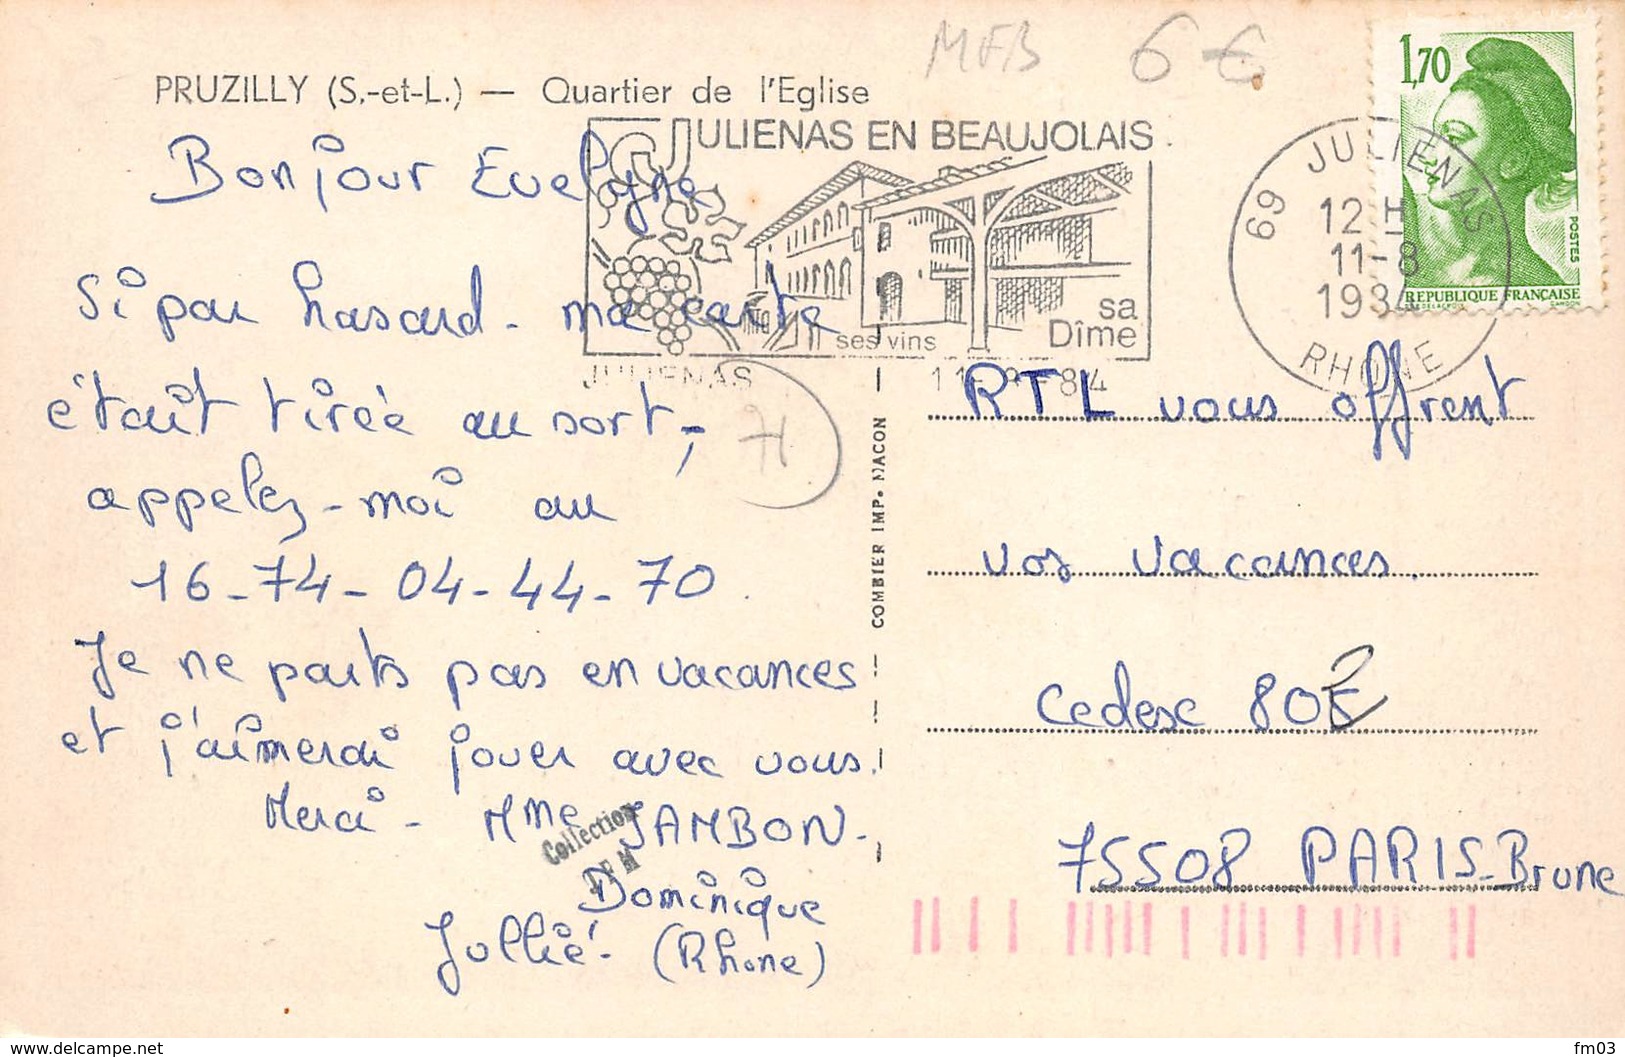 MFB 6 €
PRUZILLY (S.-et-L.) — Quartier de l'Eglise
JULIENAS EN BEAUJOLAIS
ses vins
sa
Dîme
JULIENAS 11-8-84
69 JULIENAS
12 H
11-8
1984
RHONE
1,70
POSTES
REPUBLIQUE FRANÇAISE
Bonjour Evelyne
Si par hasard - ma carte
était tirée au sort,
appelez-moi au
16-74-04-44-70.
Je ne parts pas en vacances
et j'aimerai jouer avec vous.
Merci - Mme JAMBON-
Dominique
Jullié. (Rhone)
71
Collection
COMBIER IMP. MACON
RTL vous offrent
vos vacances.
Cedesc 802
75508 PARIS-Brune
delcampe.net
fm03